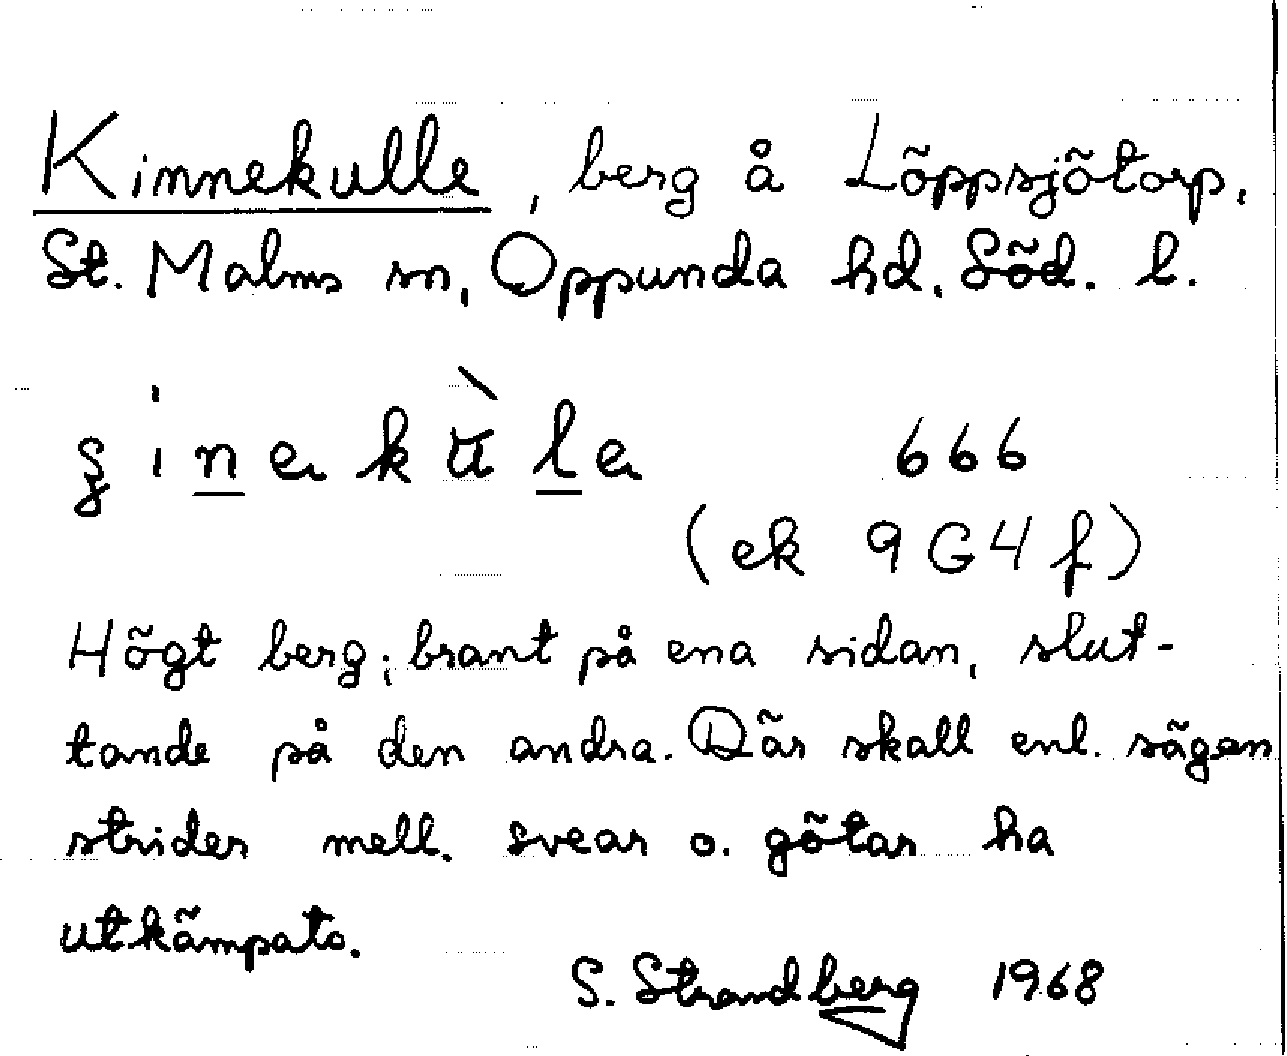 Kinnekulle, berg å Löppsjötorp,
St. Malms sn, Oppunda hd, Söd. l.
666
(ek 9G4f)
Högt berg; brant på ena sidan, slut-
tande på den andra. Där skall enl. sägen
strider mell. svear o. götar ha
utkämpats.
S. Strandberg 1968